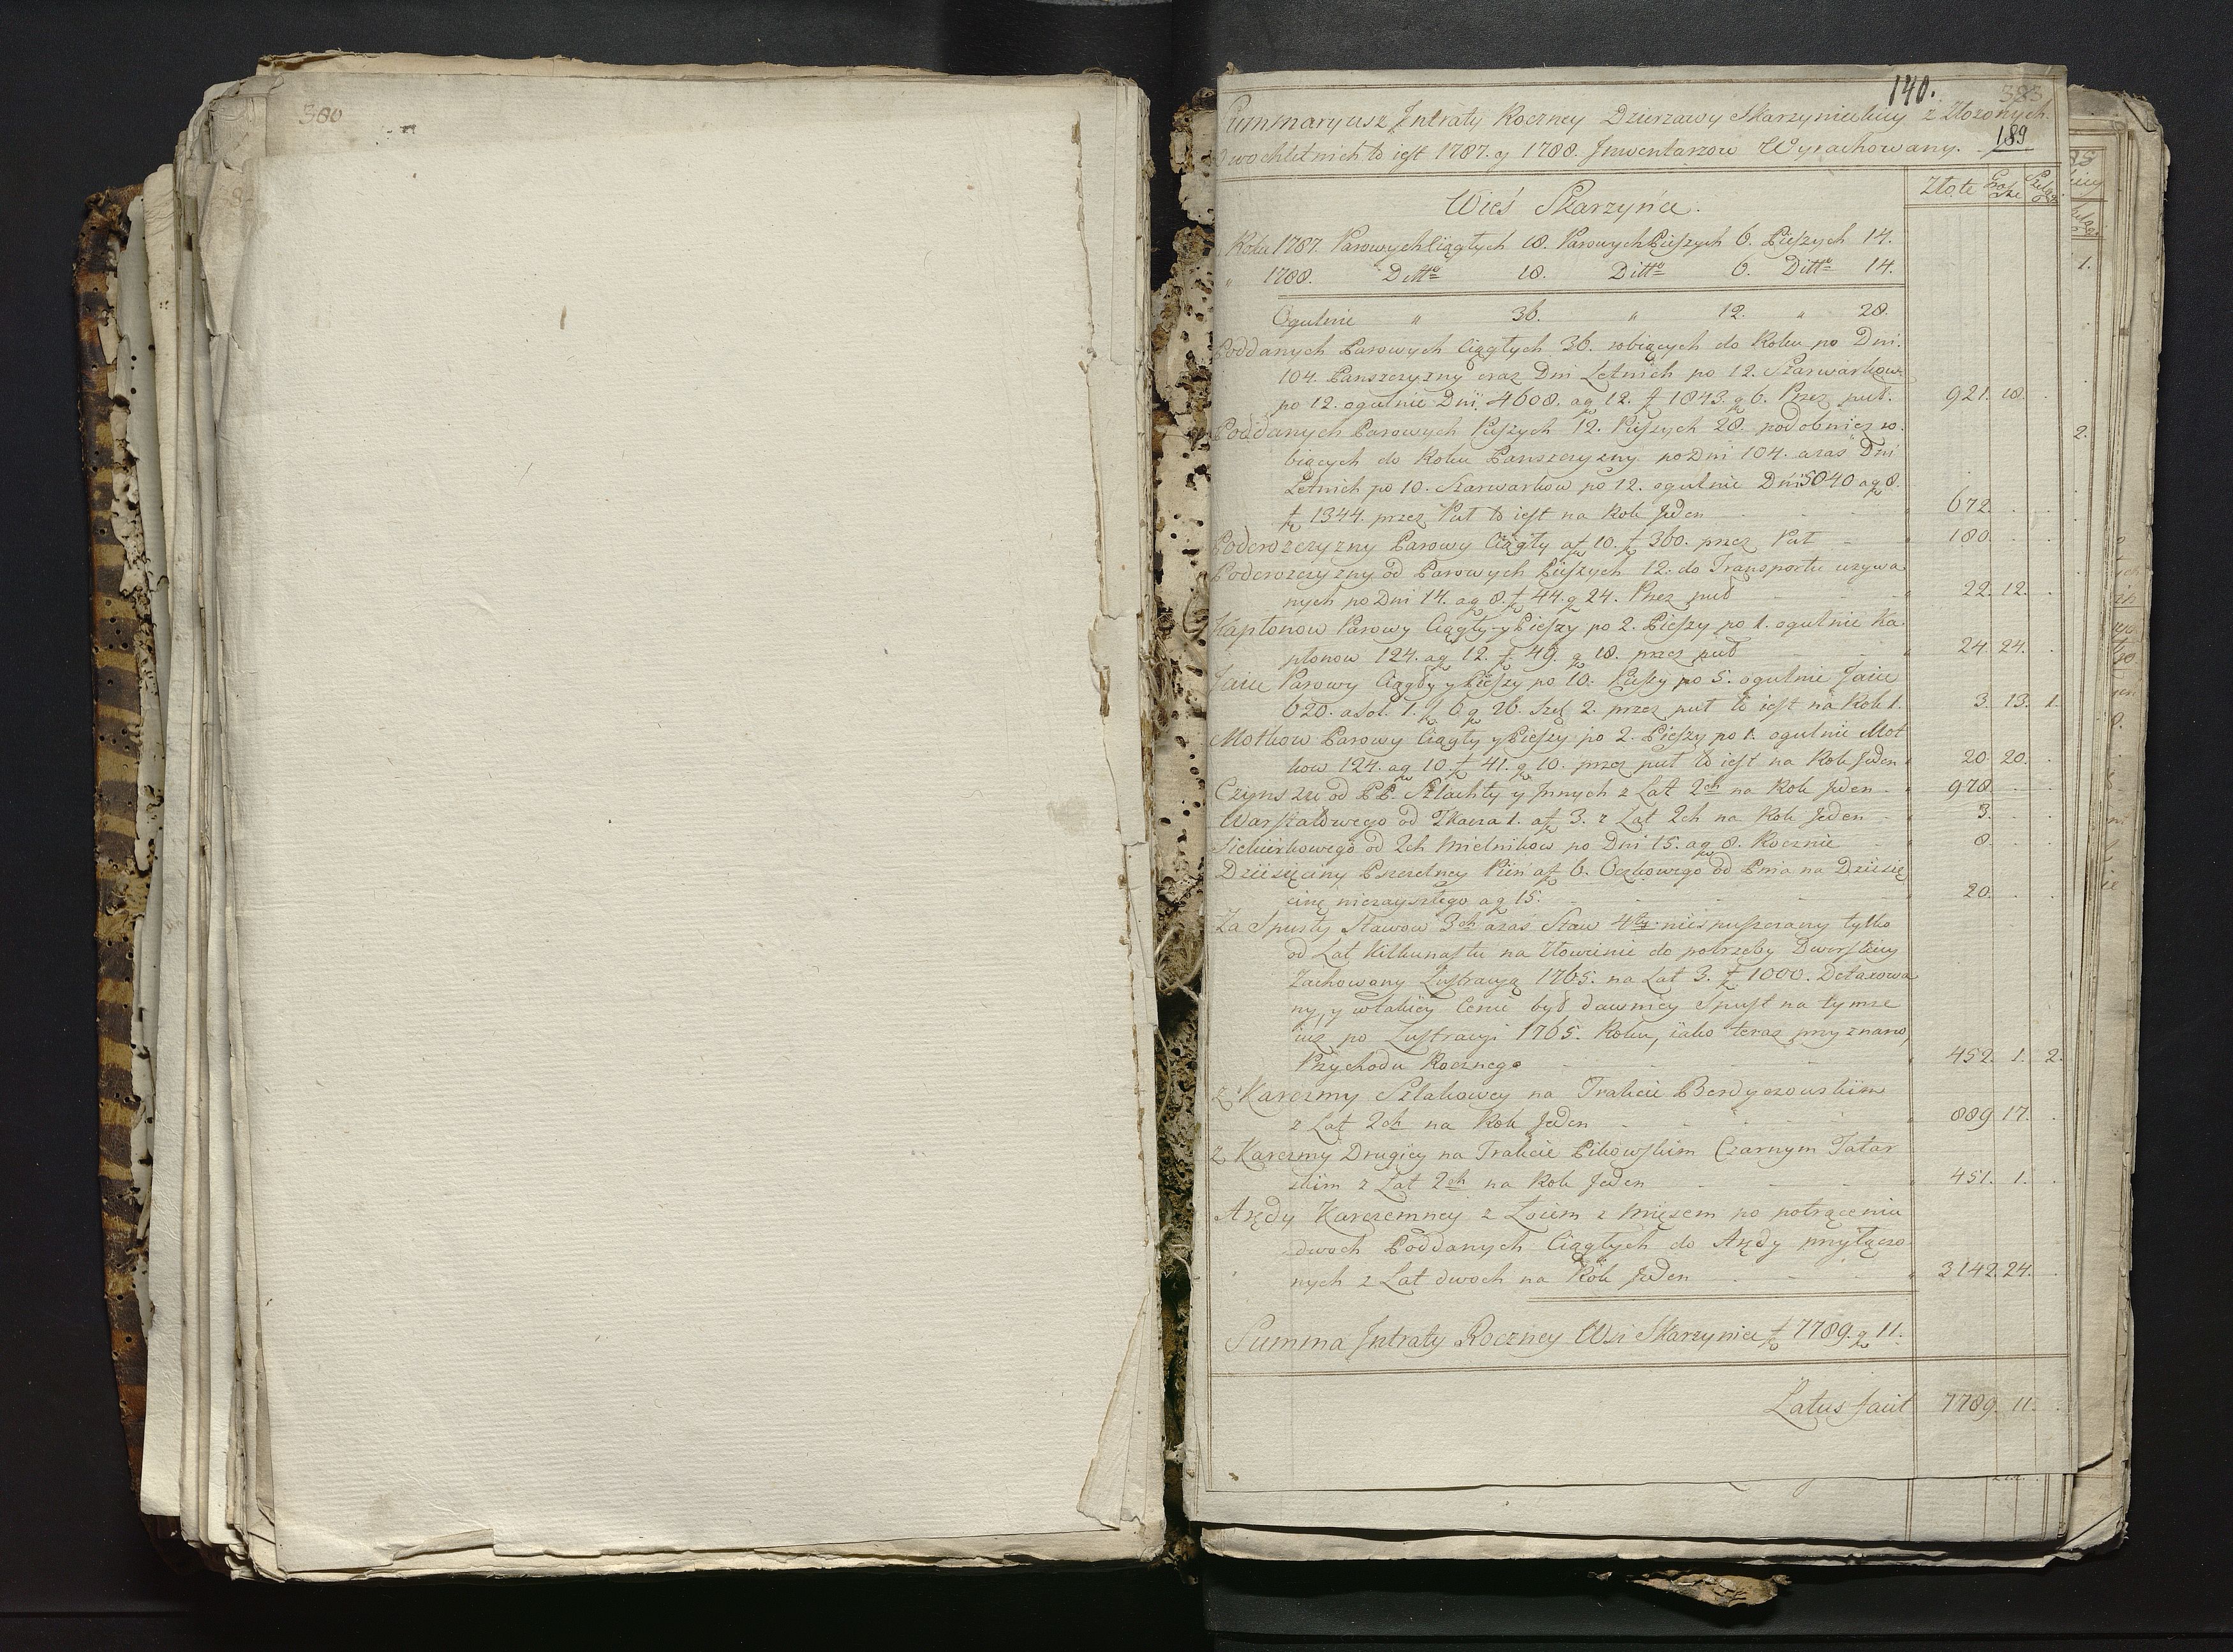 380
140.
383
Summaryusz Jntraty Roczney Dzierzawy Skarzynieckiey z Złozonych
Dwochletnich to iest 1787. y 1788. Jnwentarzow Wyrachowany.
189
Złote Grosze Szelągi
Wieś Skarzyńce.
Roku 1787. Parowych Ciągłych 18. Parowych Pieszych 6. Pieszych 14.
" 1788. Ditto 18. Ditto 6. Ditto 14.
Ogulnie " 36. " 12. " 28.
Poddanych Parowych Ciągłych 36. robiących do Roku po Dni.
104. Panszczyzny oraz Dni Letnich po 12. Szarwarkow
po 12. ogulnie Dni 4608. a g 12. f 1843. g 6. Przez puł. 921. 18.
Poddanych Parowych Pieszych 12. Pieszych 28. podobniez ro-
biących do Roku Panszczyzny po Dni 104. oraz Dni
Letnich po 10. Szarwarkow po 12. ogulnie Dni 5040 a g 8.
f 1344. przez Puł to iest na Rok Jeden 672.
Poderozczyzny Parowy Ciągły a f 10. f 360. przez Puł 180.
Poderozczyzny od Parowych Pieszych 12. do Transportu uzywa
nych po Dni 14. a g 8. f 44. g 24. Przez puł 22. 12.
Kapłonow Parowy Ciągły y Pieszy po 2. Pieszy po 1. ogulnie Ka-
płonow 124. a g 12. f 49. g 18. przez puł 24. 24.
Jaiec Parowy Ciągły y Pieszy po 10. Pieszy po 5. ogulnie Jaiec
620. a Sol. 1. f 6 g 26. Szel 2. przez puł to iest na Rok 1. 3. 13. 1.
Motkow Parowy Ciągły y Pieszy po 2. Pieszy po 1. ogulnie Mot
kow 124. a g 10. f 41. g 10. przez puł to iest na Rok Jeden 20. 20.
Czynszu od PP. Szlachty y Jnnych z Lat 2ch na Rok Jeden 978.
Warsztatowego od Tkacza 1. a f 3. z Lat 2ch na Rok Jeden 3.
Siekierkowego od 2ch Mielnikow po Dni 15. a g 8. Rocznie 8.
Dziesięciny Pszczelney Pień a f 6. Oczkowego od Pnia na Dziesię
cinę niezayszłego a g 15. 20.
Za Spusty Stawow 3ch oraz Staw 4ty niespuszczany tylko
od Lat Kilkunastu na Złowienie do potrzeby Dworskiey
Zachowany Lustracyą 1765. na Lat 3. f 1000. Detaxowa
ny, y w takiey Cenie był dawniey Spust na tymze
iuz po Lustracyi 1765. Roku, iako teraz przyznano,
Przychodu Rocznego 452. 1. 2.
z Karczmy Szlakowey na Trakcie Berdyczowskim
z Lat 2ch na Rok Jeden 889. 17.
z Karczmy Drugiey na Trakcie Pikowskim Czarnym Tatar
skim z Lat 2ch na Rok Jeden 451. 1.
Arędy Karczemney z Łoiem z Mięsem po potrąceniu
dwoch Poddanych Ciągłych do Arędy przyłączo
nych z Lat dwoch na Rok Jeden 3142. 24.
Summa Jntraty Roczney Wsi Skarzyniec f 7789. g 11.
Latus facit 7789. 11.